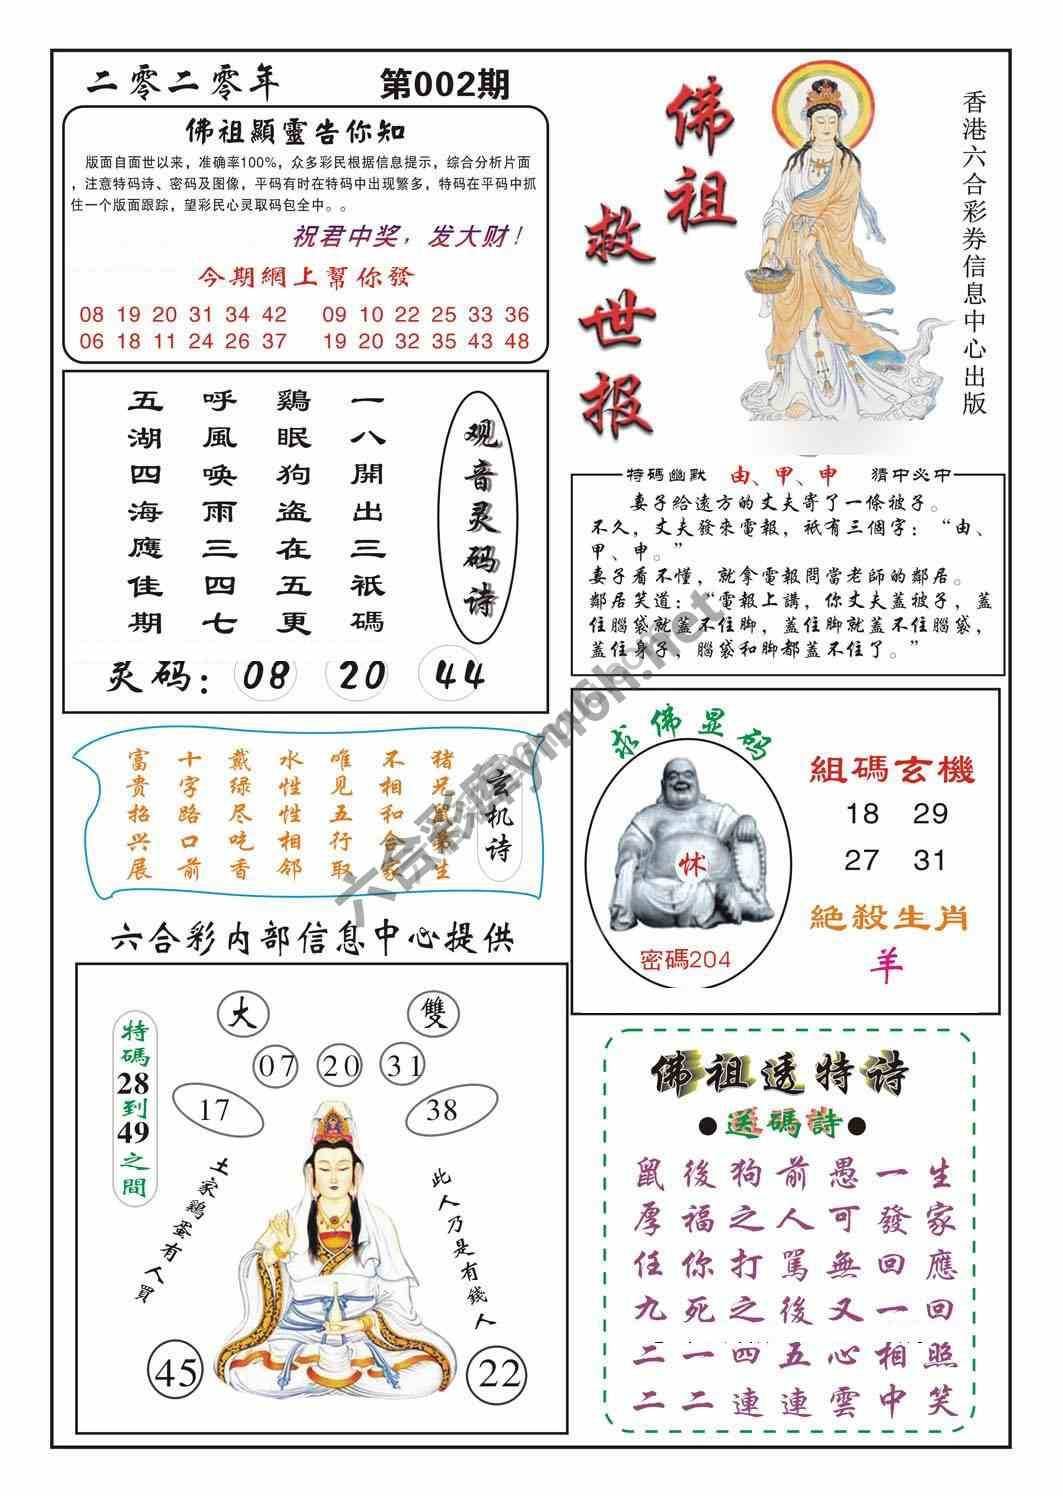 二零二零年
第002期
佛祖顯靈告你知
版面自面世以来，准确率100%，众多彩民根据信息提示，综合分析片面
，注意特码诗、密码及图像，平码有时在特码中出现繁多，特码在平码中抓
住一个版面跟踪，望彩民心灵取码包全中。。
祝君中奖，发大财！
今期網上幫你發
08 19 20 31 34 42 09 10 22 25 33 36
06 18 11 24 26 37 19 20 32 35 43 48
佛祖
救世报
香港六合彩券信息中心出版
观音灵码诗
一八開出三祇碼
鷄眠狗盗在五更
呼風唤雨三四七
五湖四海應佳期
灵码：08 20 44
特碼幽默 由、甲、申 猜中必中
妻子給遠方的丈夫寄了一條被子。
不久，丈夫發來電報，祇有三個字：“由、
甲、申。”
妻子看不懂，就拿電報問當老師的鄰居。
鄰居笑道：“電報上講，你丈夫蓋被子，蓋
住腦袋就蓋不住脚，蓋住脚就蓋不住腦袋，
蓋住身子，腦袋和脚都蓋不住了。”
玄机诗
猪兄鼠弟生
不相和合家
唯见五行取
水性性相邻
戴绿尽吃香
十字路口前
富贵招兴展
求佛显码
密碼204
組碼玄機
18 29
27 31
絕殺生肖
羊
六合彩内部信息中心提供
大 雙
07 20 31
17 38
特碼28到49之間
土家鷄蛋有人買
此人乃是有錢人
45 22
佛祖透特诗
●送碼詩●
鼠後狗前愚一生
厚福之人可發家
任你打罵無回應
九死之後又一回
二一四五心相照
二二連連雲中笑